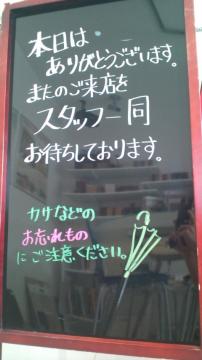 本日は
ありがとうございます。
またのご来店を
スタッフ一同
お待ちしております。
カサなどの
お忘れもの
にご注意ください。